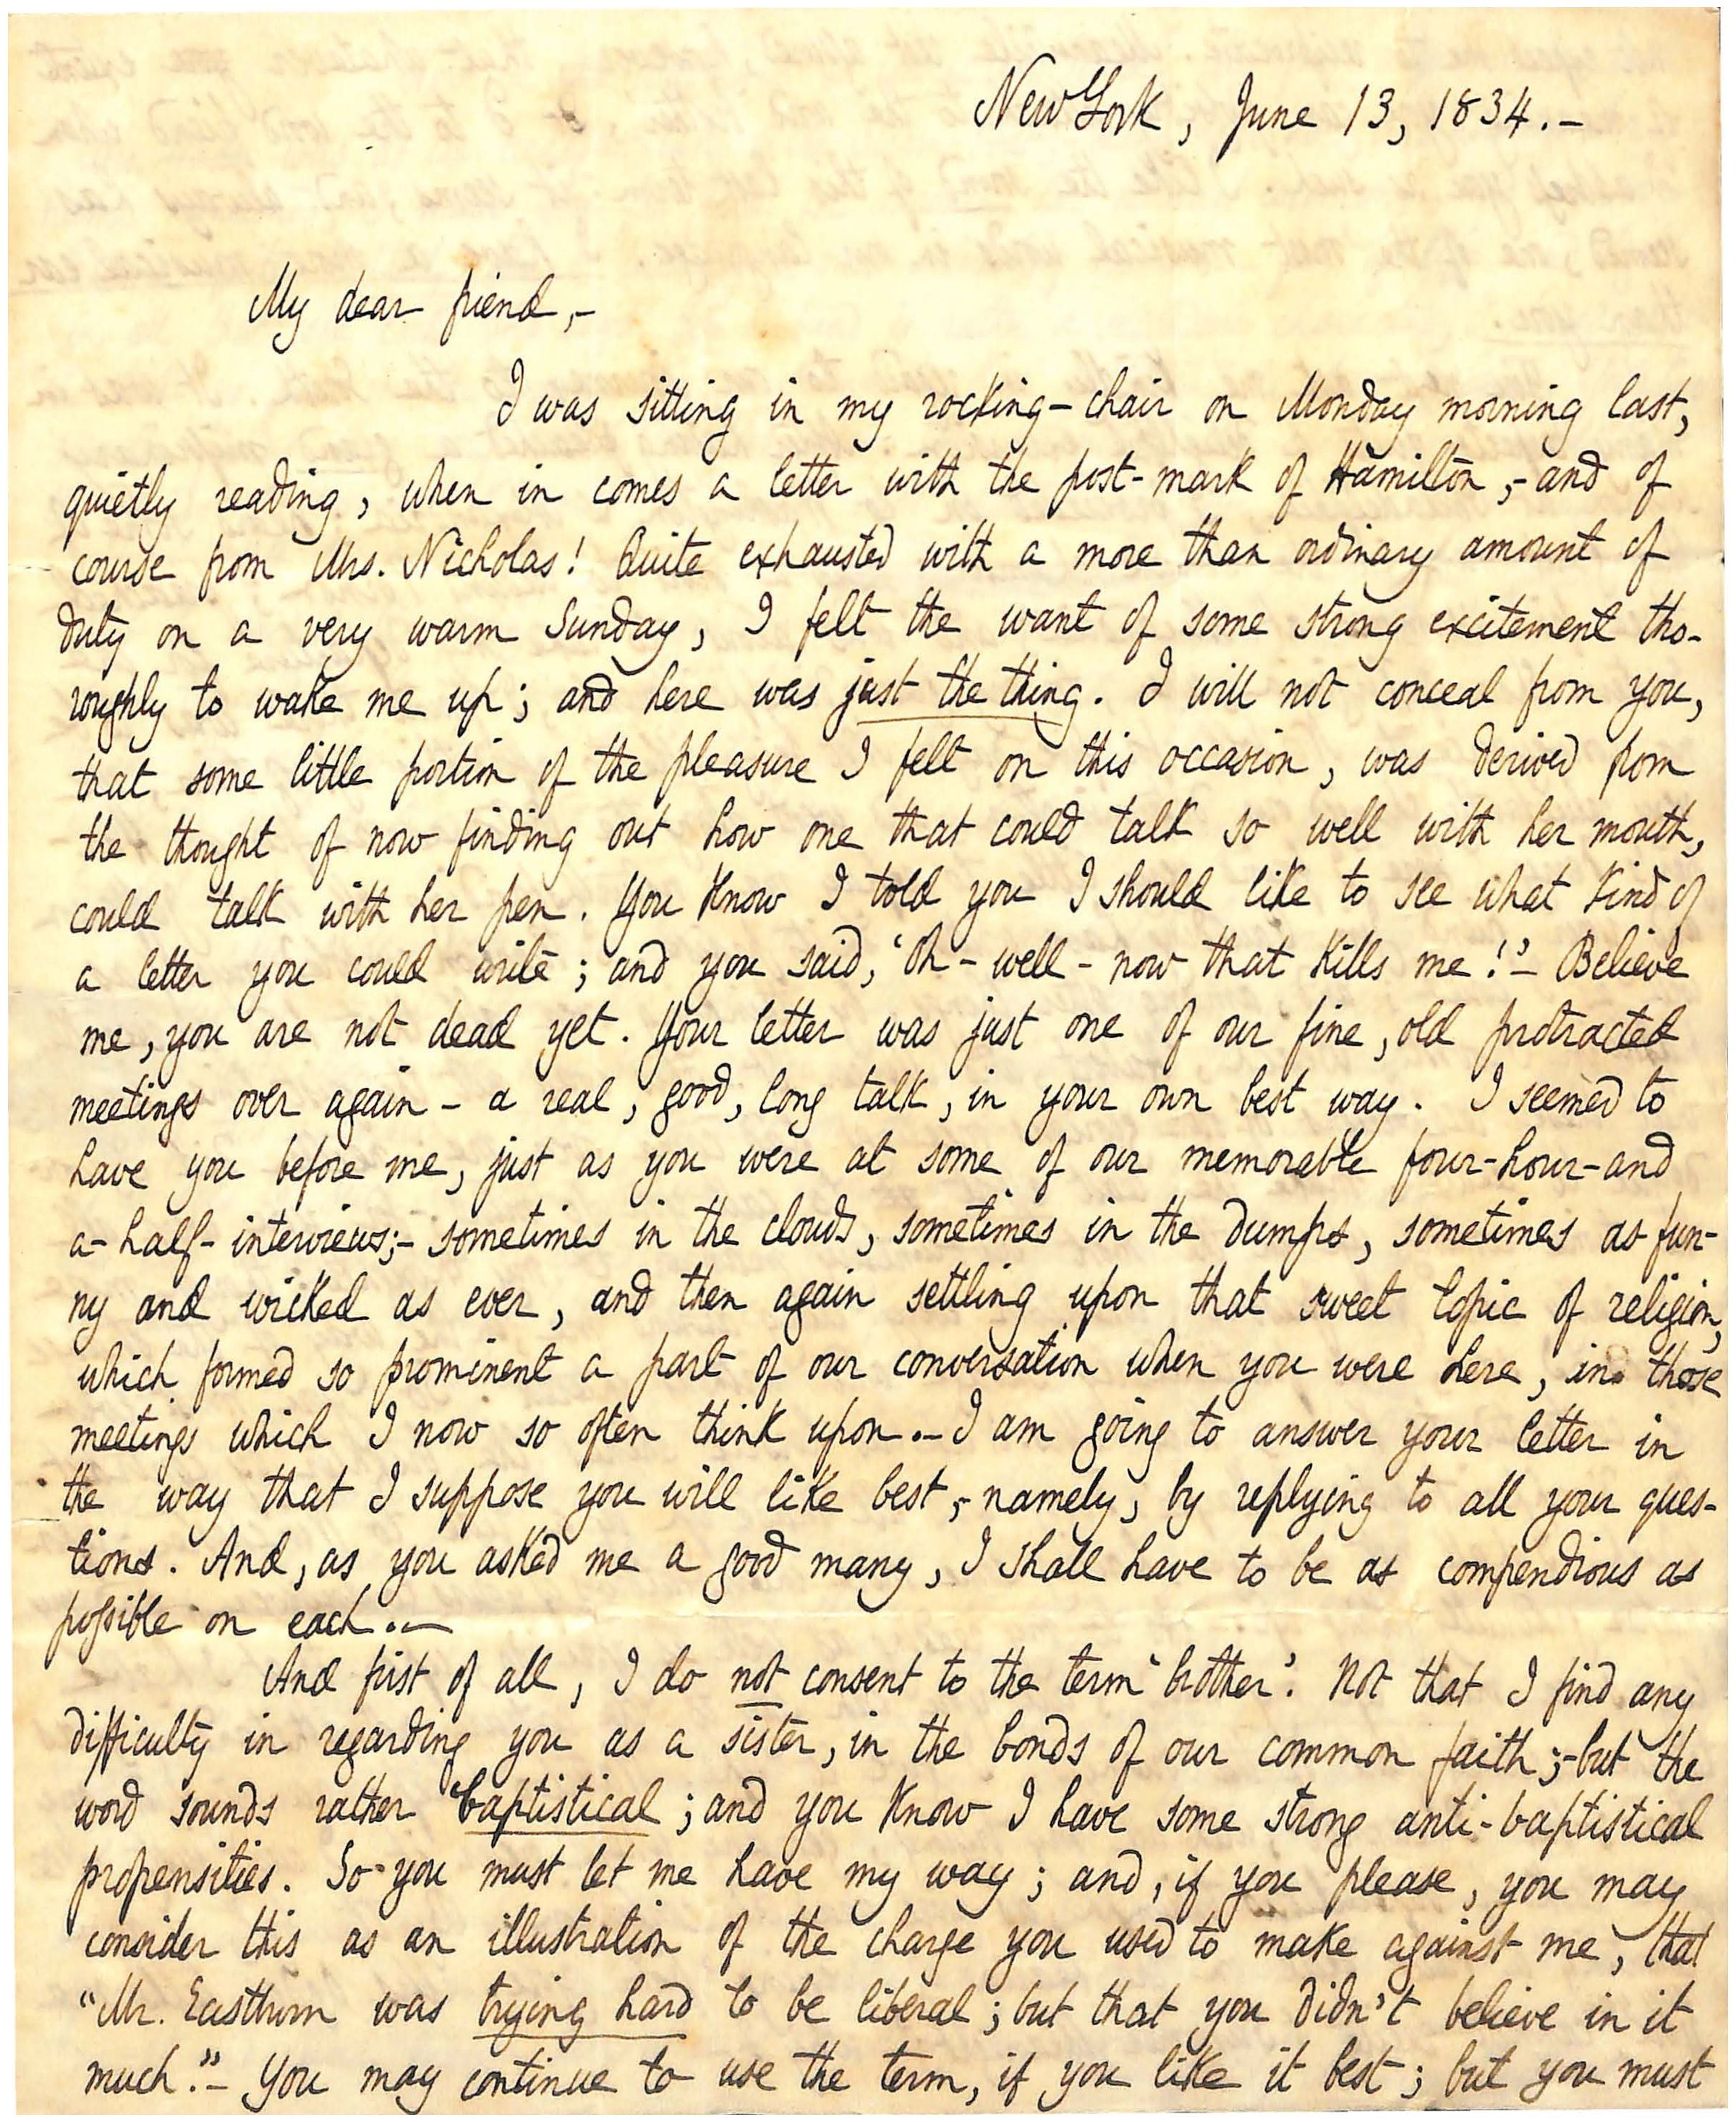 New York, June 13, 1834.-
My dear friend,-
I was sitting in my rocking-chair on Monday morning last,
quietly reading, when in comes a letter with the post-mark of Hamilton,-and of
course from Mrs. Nicholas! Quite exhausted with a more than ordinary amount of
duty on a very warm Sunday, I felt the want of some strong excitement tho-
roughly to wake me up; and here was just the thing. I will not conceal from you,
that some little portion of the pleasure I felt on this occasion, was derived from
the thought of now finding out how one that could talk so well with her mouth,
could talk with her pen. You know I told you I should like to see what kind of
a letter you could write; and you said, 'Oh-well-now that kills me!'- Believe
me, you are not dead yet. Your letter was just one of our fine, old protracted
meetings over again - a real, good, long talk, in your own best way. I seemed to
have you before me, just as you were at some of our memorable four-hour-and
a-half-interviews;- sometimes in the clouds, sometimes in the dumps, sometimes as fun-
ny and wicked as ever, and then again settling upon that sweet topic of religion,
which formed so prominent a part of our conversation when you were here, in those
meetings which I now so often think upon.- I am going to answer your letter in
the way that I suppose you will like best,- namely, by replying to all your ques-
tions. And, as you asked me a good many, I shall have to be as compendious as
possible on each.-
And first of all, I do not consent to the term 'brother'. Not that I find any
difficulty in regarding you as a sister, in the bonds of our common faith;-but the
word sounds rather baptistical; and you know I have some strong anti-baptistical
propensities. So you must let me have my way; and, if you please, you may
consider this as an illustration of the charge you used to make against me, that
"Mr. Eastburn was trying hard to be liberal; but that you didn't believe in it
much."- You may continue to use the term, if you like it best; but you must